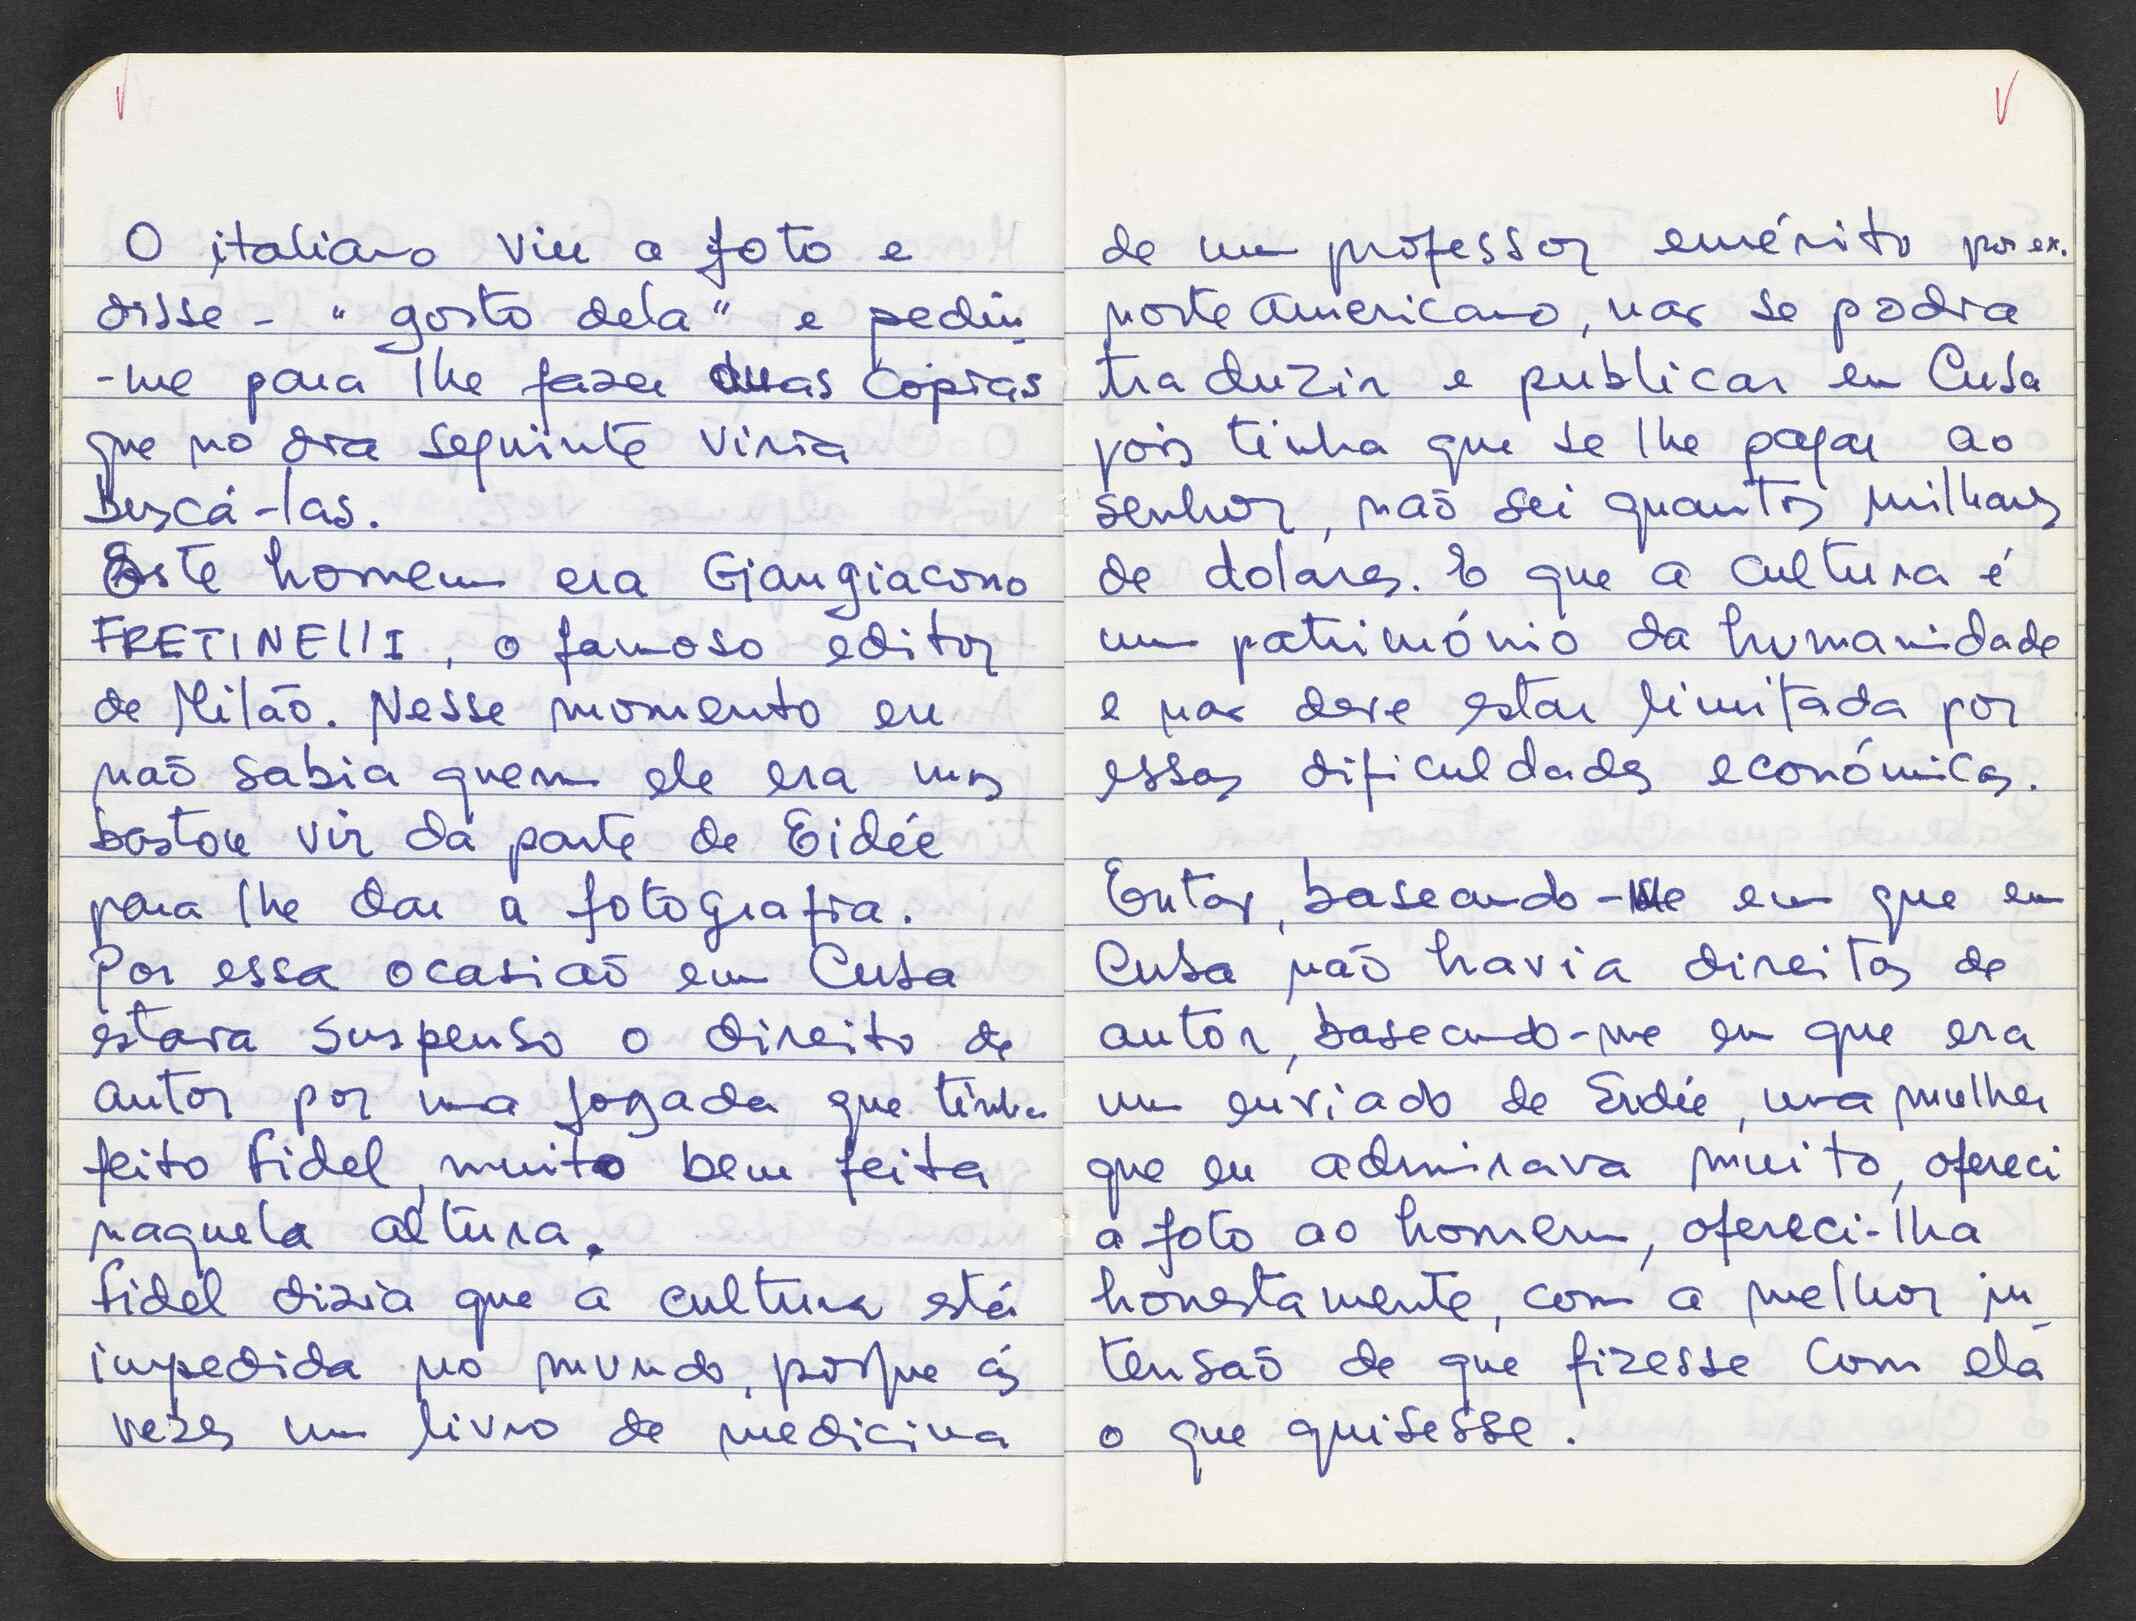 O italiano viu a foto e
disse - "gosto dela" e pediu-
-me para lhe fazer duas cópias
que no dia seguinte viria
buscá-las.
Este homem era Giangiacomo
FRETINEllI, o famoso editor
de Milão. Nesse momento eu
não sabia quem ele era mas
bastou vir da parte de Eidée
para lhe dar a fotografia.
Por essa ocasião em Cuba
estava suspenso o direito de
autor por uma jogada que tinha
feito Fidel, muito bem feita
naquela altura.
Fidel dizia que a cultura está
impedida no mundo, porque ás
vezes um livro de medicina
de um professor emérito por ex.
norte americano, não se podia
traduzir e publicar em Cuba
pois tinha que se lhe pagar ao
senhor, não sei quantos milhares
de dolares. E que a cultura é
um património da humanidade
e não deve estar limitada por
essas dificuldades económicas.
Então, baseando-me em que em
Cuba não havia direitos de
autor, baseando-me em que era
um enviado de Eidée, uma mulher
que eu admirava muito, ofereci
a foto ao homem, ofereci-lha
honestamente, com a melhor in-
tensão de que fizesse com ela
o que quisesse.